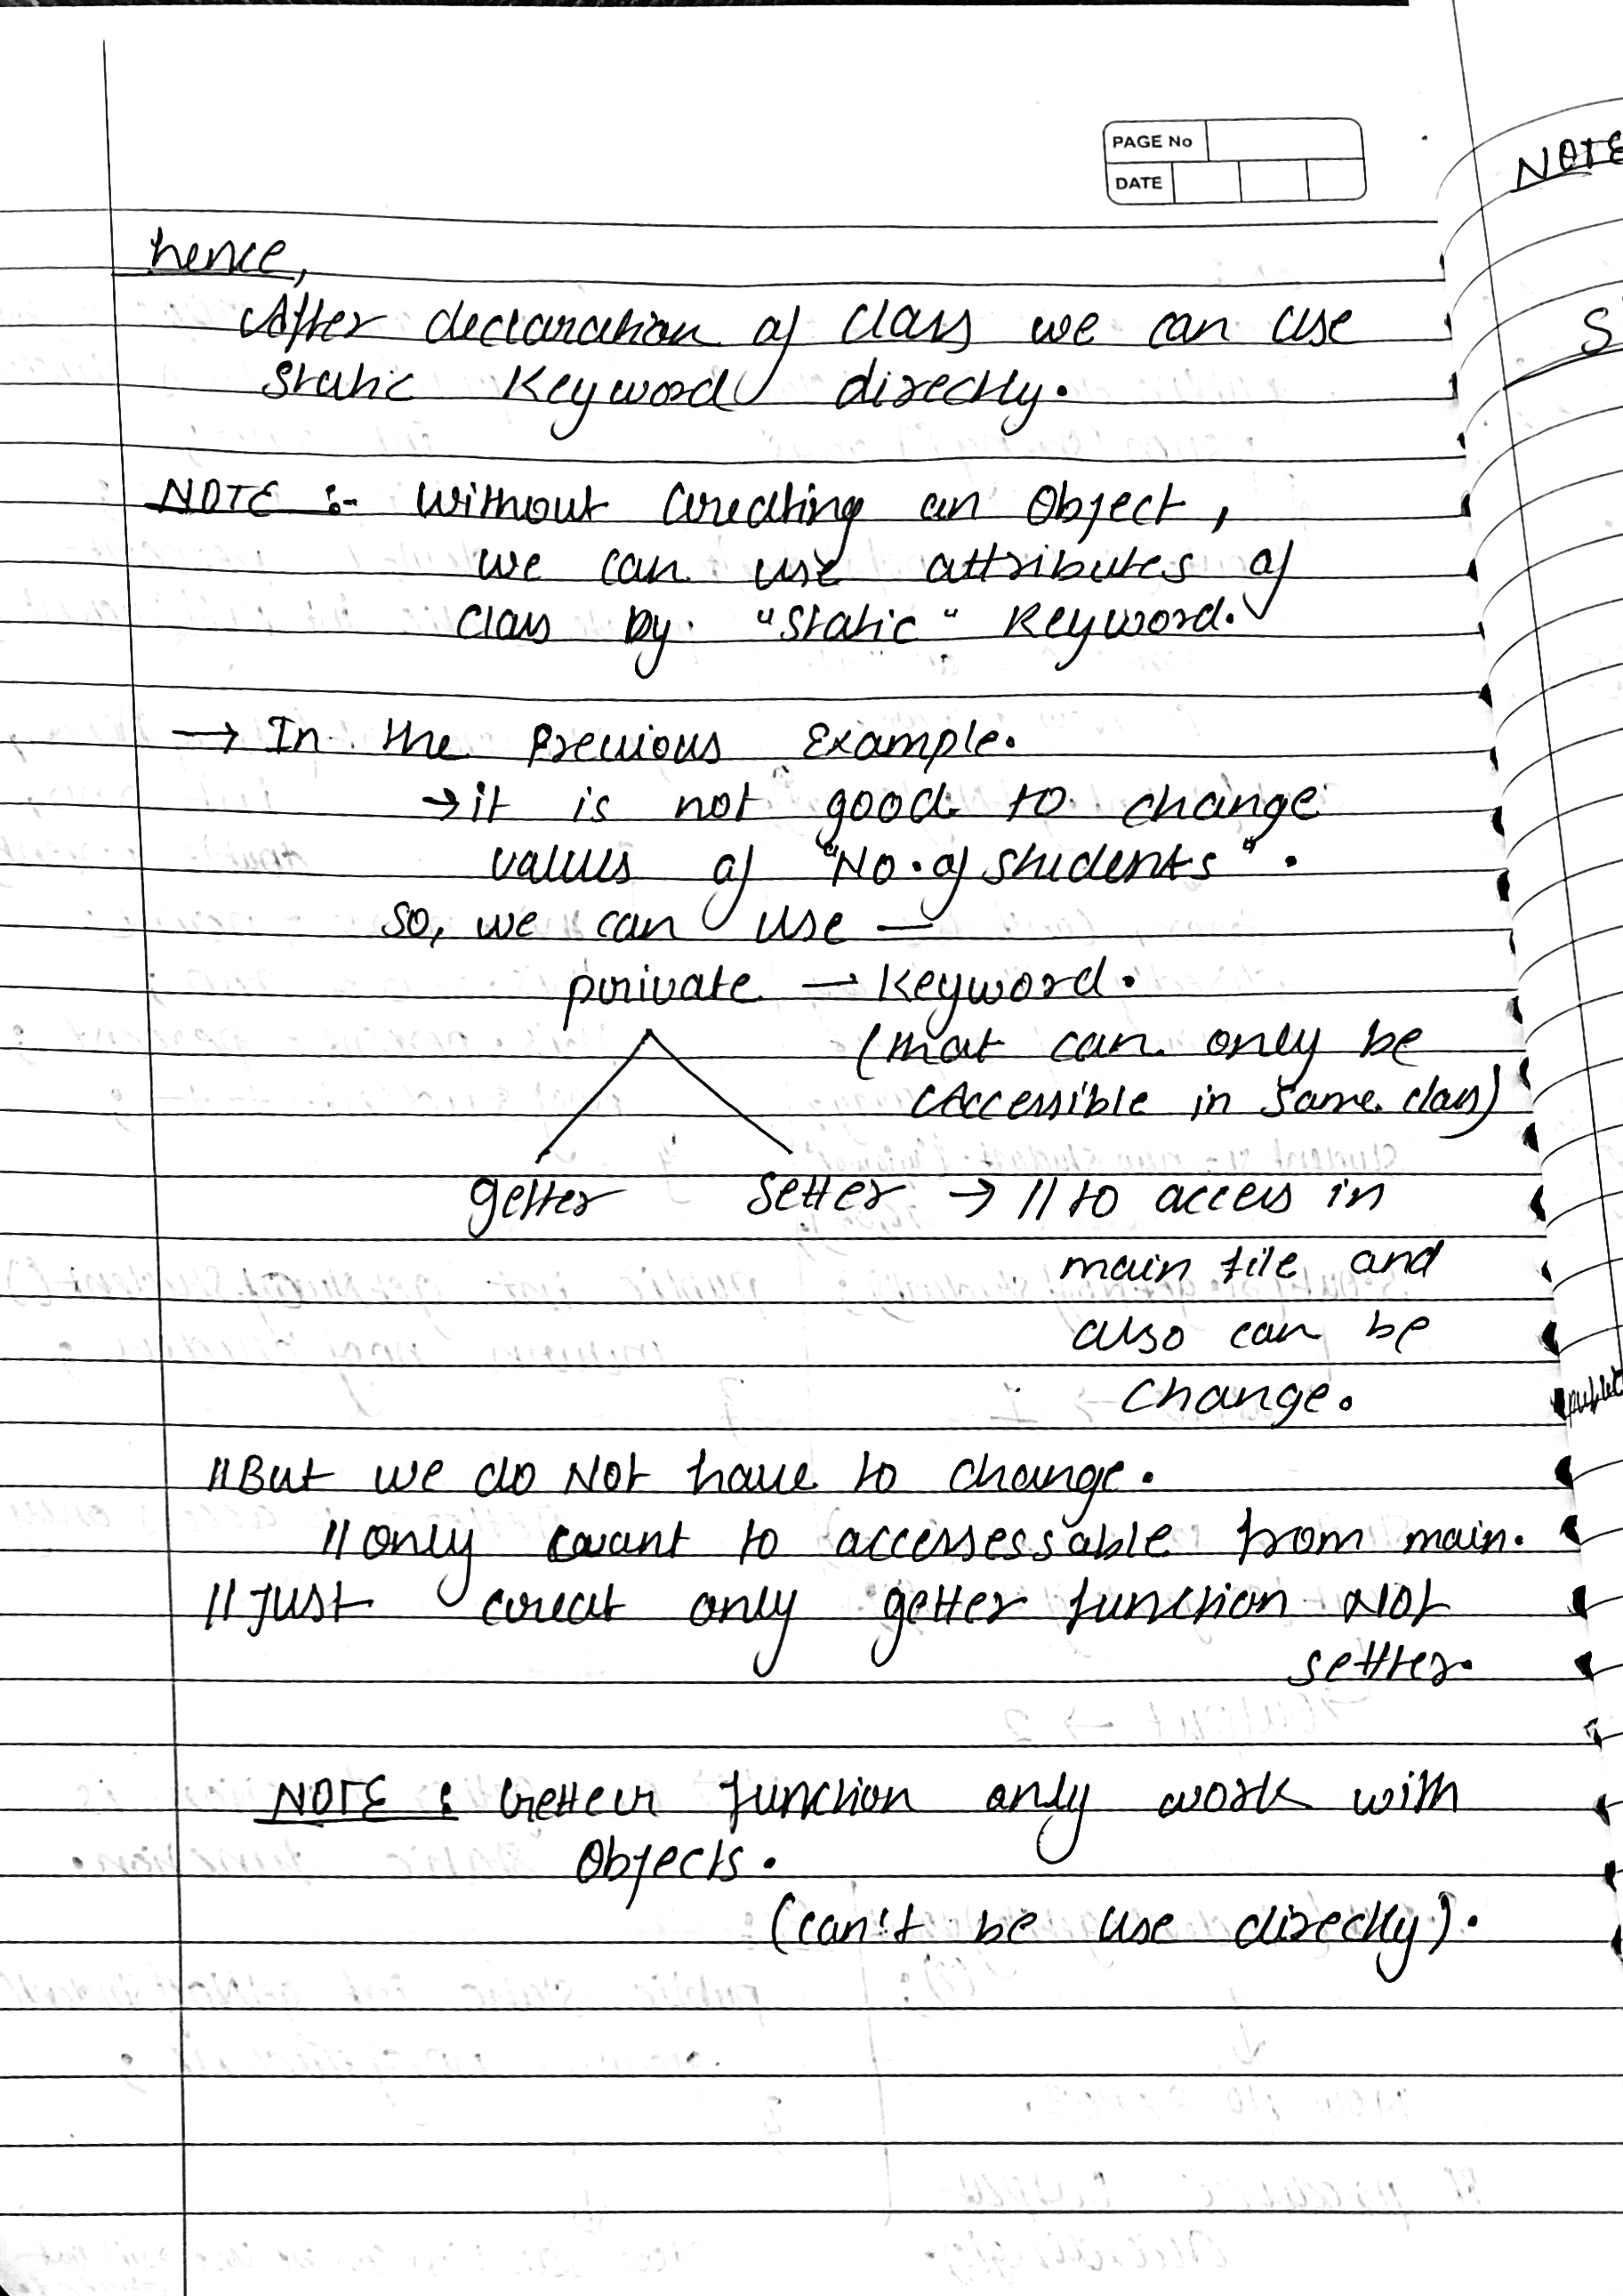 PAGE No
DATE
hence,
After declaration of class we can use
static Keyword directly.
NOTE :- Without Creating an Object,
we can use attributes of
class by "static" Keyword.
→ In the Previous Example.
→ it is not good to change
values of "No. of students".
So, we can use —
private → Keyword.
(that can only be
Accessible in same class)
getter setter → // to access in
main file and
also can be
change.
// But we do Not have to change.
// only want to accessessable from main.
// Just creat only getter function Not
settter.
NOTE : Getter function only work with
Objects.
(can't be use directly).
NOTE
S